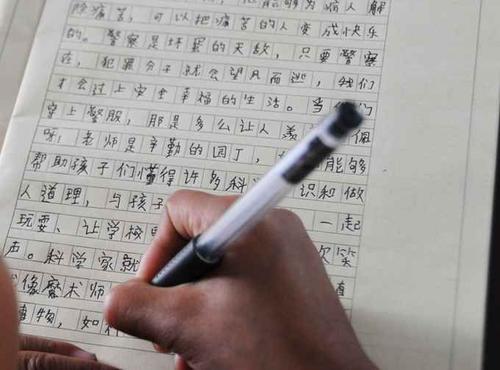 能够为病人解
除痛苦，可以把痛苦的人变成快乐
的。警察是坏蛋的天敌，只要警察
在，犯罪分子就会望风而逃，我们
才会过上安全幸福的生活。当 们
穿上警服，那是多么让人羡 佩
呀，老师是辛勤的园丁， 能够
帮助孩子们懂得许多科 识和做
人道理，与孩子 一起
玩耍、让学校 欢笑
声。科学家就
像魔术师 植
物，如